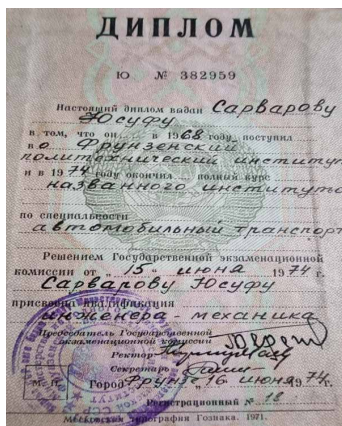 ДИПЛОМ
Ю № 382959
Настоящий диплом выдан Сарварову
Юсуфу
в том, что он в 1968 году поступил
в о Фрунзенский
политехнический институт
и в 1974 году окончил полный курс
названного института
по специальности
автомобильный транспорт
Решением Государственной экзаменационной
комиссии от „15" июня 1974 г.
Сарварову Юсуфу
присвоена квалификация
инженера-механика
Председатель Государственной
экзаменационной комиссии
Ректор
Секретарь
М. П. Город Фрунзе, 16 июня 1974 г.
Регистрационный № 18
Московская типография Гознака. 1971.